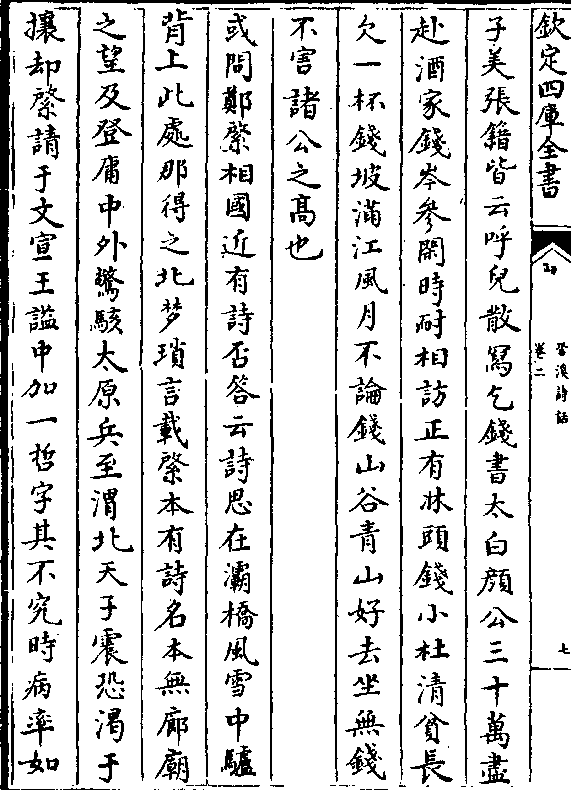 欽定四庫全書
䂬溪詩話
卷二
七
子美張籍皆云呼兒散寫乞錢書太白顔公三十萬盡
赴酒家錢岑參閑時耐相訪正有牀頭錢小杜清貧長
欠一杯錢坡滿江風月不論錢山谷青山好去坐無錢
不害諸公之髙也
或問鄭綮相國近有詩否答云詩思在灞橋風雪中驢
背上此處那得之北梦瑣言載綮本有詩名本無廊廟
之望及登庸中外驚駭太原兵至渭北天子震恐渴于
攘却綮請于文宣王諡中加一哲字其不究時病率如